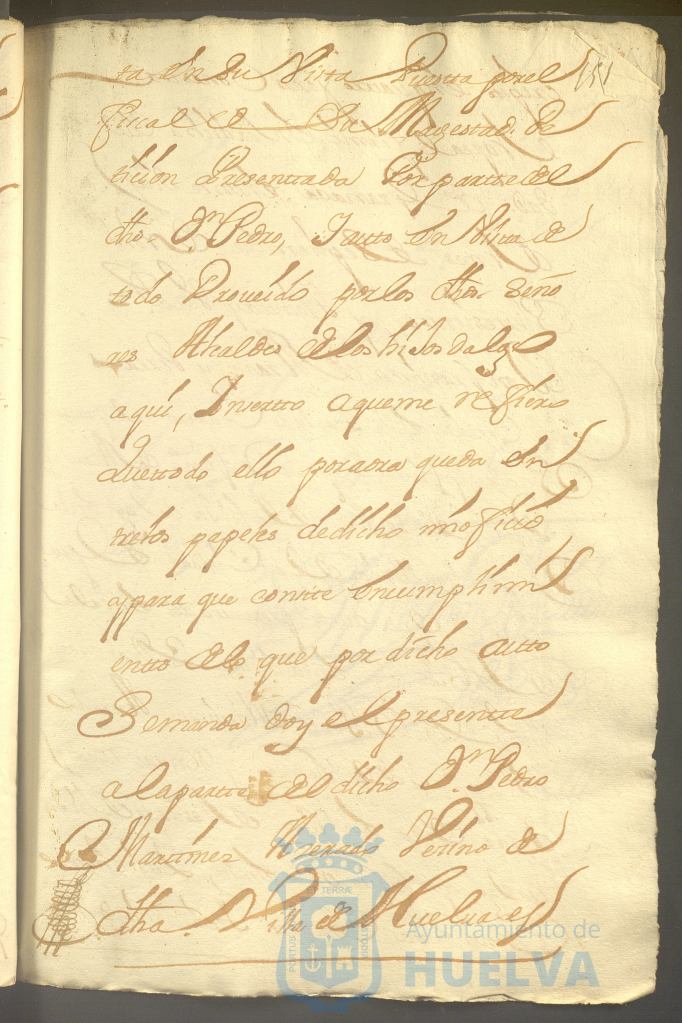 ta en su Vista Puesta por el
151
fiscal de Su Magestad. Pe
ticion Presenttada Por partte del
dho. Dn. Pedro, Y autto en Vista de
todo Proveido por los dhos. Seño
res Alcaldes de los hijosdalgo
aqui, Ynsertto aqueme refiero
que ttodo ello por aora queda en
tre los papeles de dicho mio ficio
yapara que conste en cumplimi
entto de lo que por dicho autto
Semanda doy el presentte
a la partte del dicho Dn. Pedro
Martinez Vezino de
dha. Villa de Huelva
PORTUS
ET TERRÆ
CUSTODIA
Ayuntamiento de
HUELVA